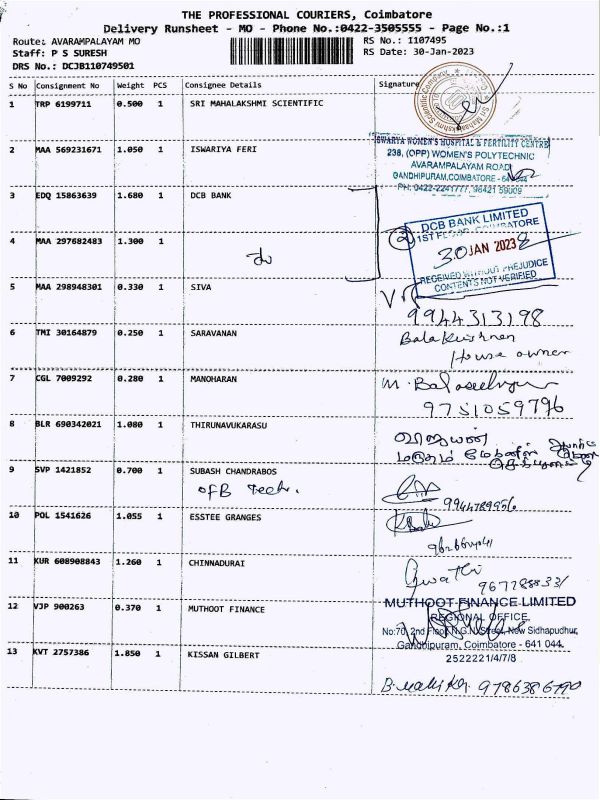 THE PROFESSIONAL COURIERS, Coimbatore
Delivery Runsheet - MO - Phone No.:0422-3505555 - Page No.:1
Route: AVARAMPALAYAM MO
RS No.: 1107495
Staff: P S SURESH
RS Date: 30-Jan-2023
DRS No.: DCJB110749501
S No Consignment No Weight PCS Consignee Details Signature
1 TRP 6199711 0.500 1 SRI MAHALAKSHMI SCIENTIFIC
2 MAA 569231671 1.050 1 ISWARIYA FERI
ISWARYA WOMEN'S HOSPITAL & FERTILITY CENTRE
238, (OPP) WOMEN'S POLYTECHNIC
AVARAMPALAYAM ROAD
GANDHIPURAM, COIMBATORE -
PH: 0422-2241777, 96421 59009
3 EDQ 15863639 1.680 1 DCB BANK
DCB BANK LIMITED
1ST FLOOR, COIMBATORE
30 JAN 2023
RECEIVED WITHOUT PREJUDICE
CONTENTS NOT VERIFIED
4 MAA 297682483 1.300 1
5 MAA 298948301 0.330 1 SIVA
9944313198
6 TMI 30164879 0.250 1 SARAVANAN
Balakrishnan
House owner
7 CGL 7009292 0.280 1 MANOHARAN
9751059796
8 BLR 690342021 1.080 1 THIRUNAVUKARASU
9 SVP 1421852 0.700 1 SUBASH CHANDRABOS
OFB Tech.
10 POL 1541626 1.055 1 ESSTEE GRANGES
11 KUR 608908843 1.260 1 CHINNADURAI
12 VJP 900263 0.370 1 MUTHOOT FINANCE
MUTHOOT FINANCE LIMITED
REGIONAL OFFICE
No:70, 2nd Floor, N.G.N. Street, New Sidhapudhur,
Gandhipuram, Coimbatore - 641 044.
2522221/4/7/8
13 KVT 2757386 1.850 1 KISSAN GILBERT
9786386790